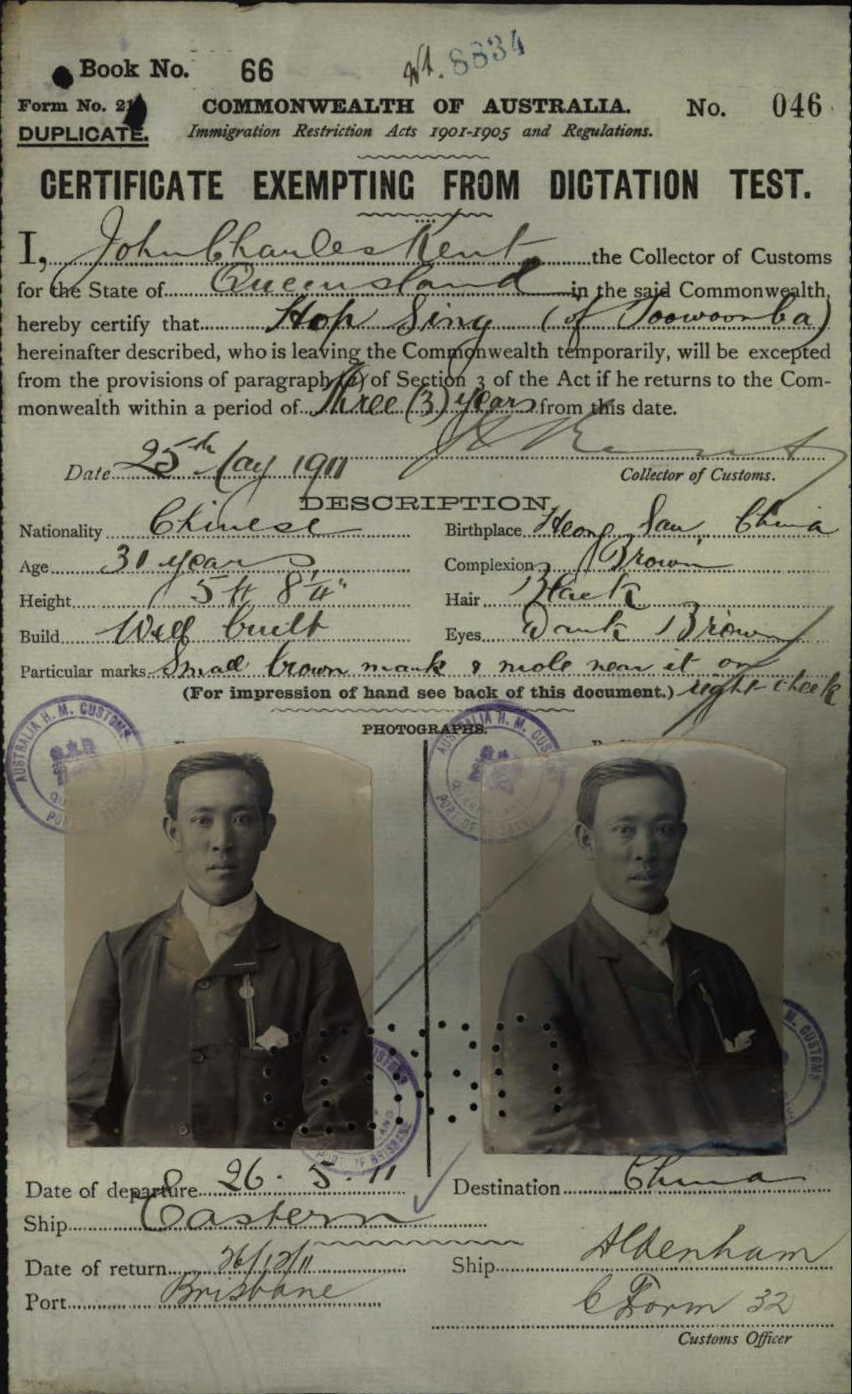 Book No. 66 8334
Form No. 21 COMMONWEALTH OF AUSTRALIA. No. 046
DUPLICATE. Immigration Restriction Acts 1901-1905 and Regulations.
CERTIFICATE EXEMPTING FROM DICTATION TEST.
I, John Charles Kent the Collector of Customs
for the State of Queensland in the said Commonwealth,
hereby certify that Hop Sing (of Toowoomba)
hereinafter described, who is leaving the Commonwealth temporarily, will be excepted
from the provisions of paragraph (a) of Section 3 of the Act if he returns to the Com-
monwealth within a period of Three (3) years from this date.
Date 25th May 1911 Collector of Customs.
DESCRIPTION.
Nationality Chinese Birthplace Heong San China
Age 30 years Complexion Brown
Height 5 ft 8¼" Hair Black
Build Well built Eyes Dark Brown
Particular marks Small brown mark & mole near it on
right cheek
(For impression of hand see back of this document.)
PHOTOGRAPHS.
AUSTRALIA H. M. CUSTOMS
AUSTRALIA H. M. CUSTOMS
Date of departure 26.5.11 Destination China
Ship Eastern
Date of return 26/12/11 Ship Aldenham
Port Brisbane C Form 32
Customs Officer